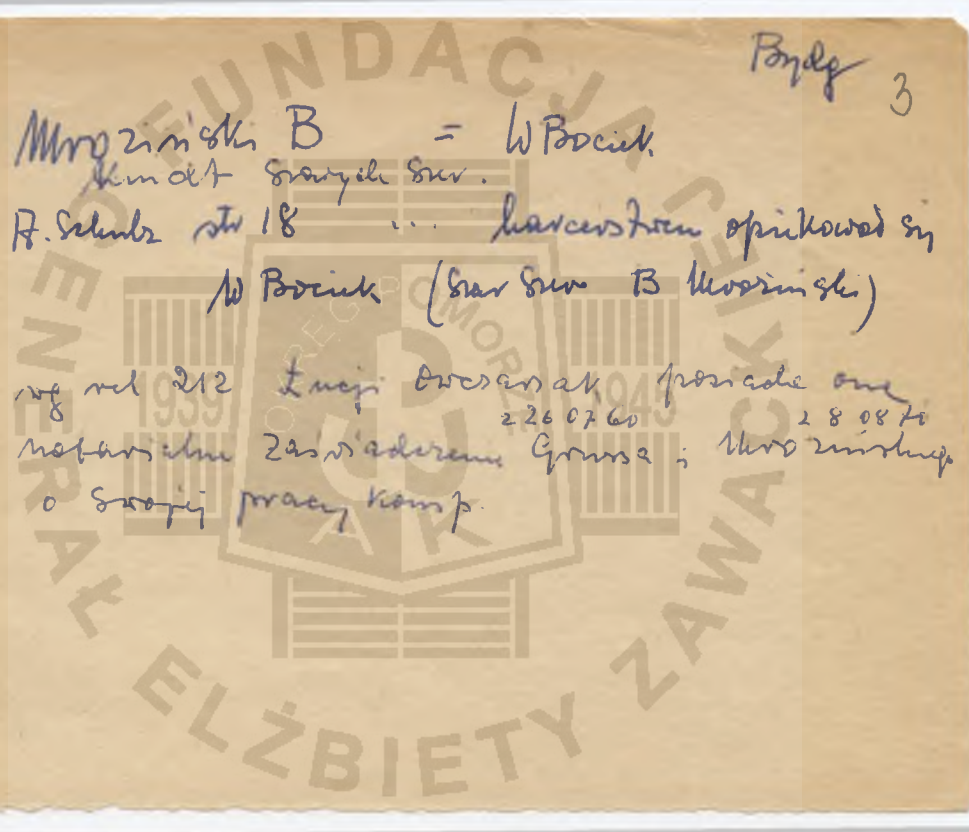 Bydg
3
Mroziński B = W Bociek
Kmdt Szarych Szer.
A. Schulz str 18 ... harcerstwem opiekował się
W Bociek (Szar Szer B Mroziński)
wg rel 212 Łucji Owczarzak, posiada ona
z 26 07 60 z 8 08 70
notarialne zaświadczenie Grussa i Mrozińskiego
o swojej pracy konsp.
FUNDACJA GENERAŁ ELŻBIETY ZAWACKIEJ
OKRĘG POMORZE
1939 1945
AK